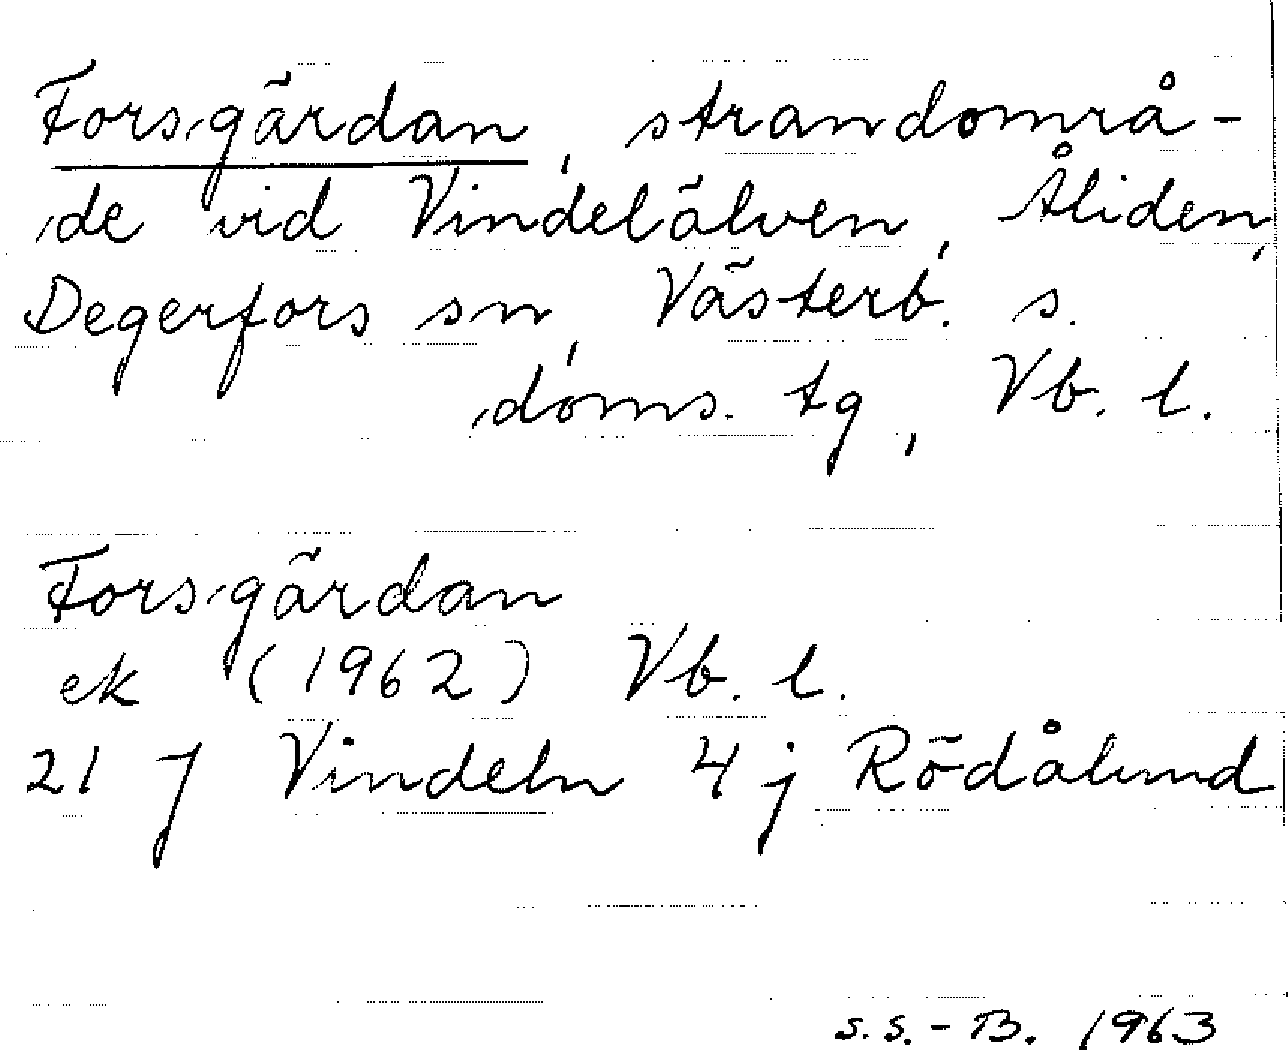 Forsgärdan, strandområ-
de vid Vindelälven, Åliden,
Degerfors sn, Västerb. s.
doms. tg, Vb. l.
Forsgärdan
ek (1962) Vb. l.
21 J Vindeln 4 j Rödålund
s.s.-B. 1963